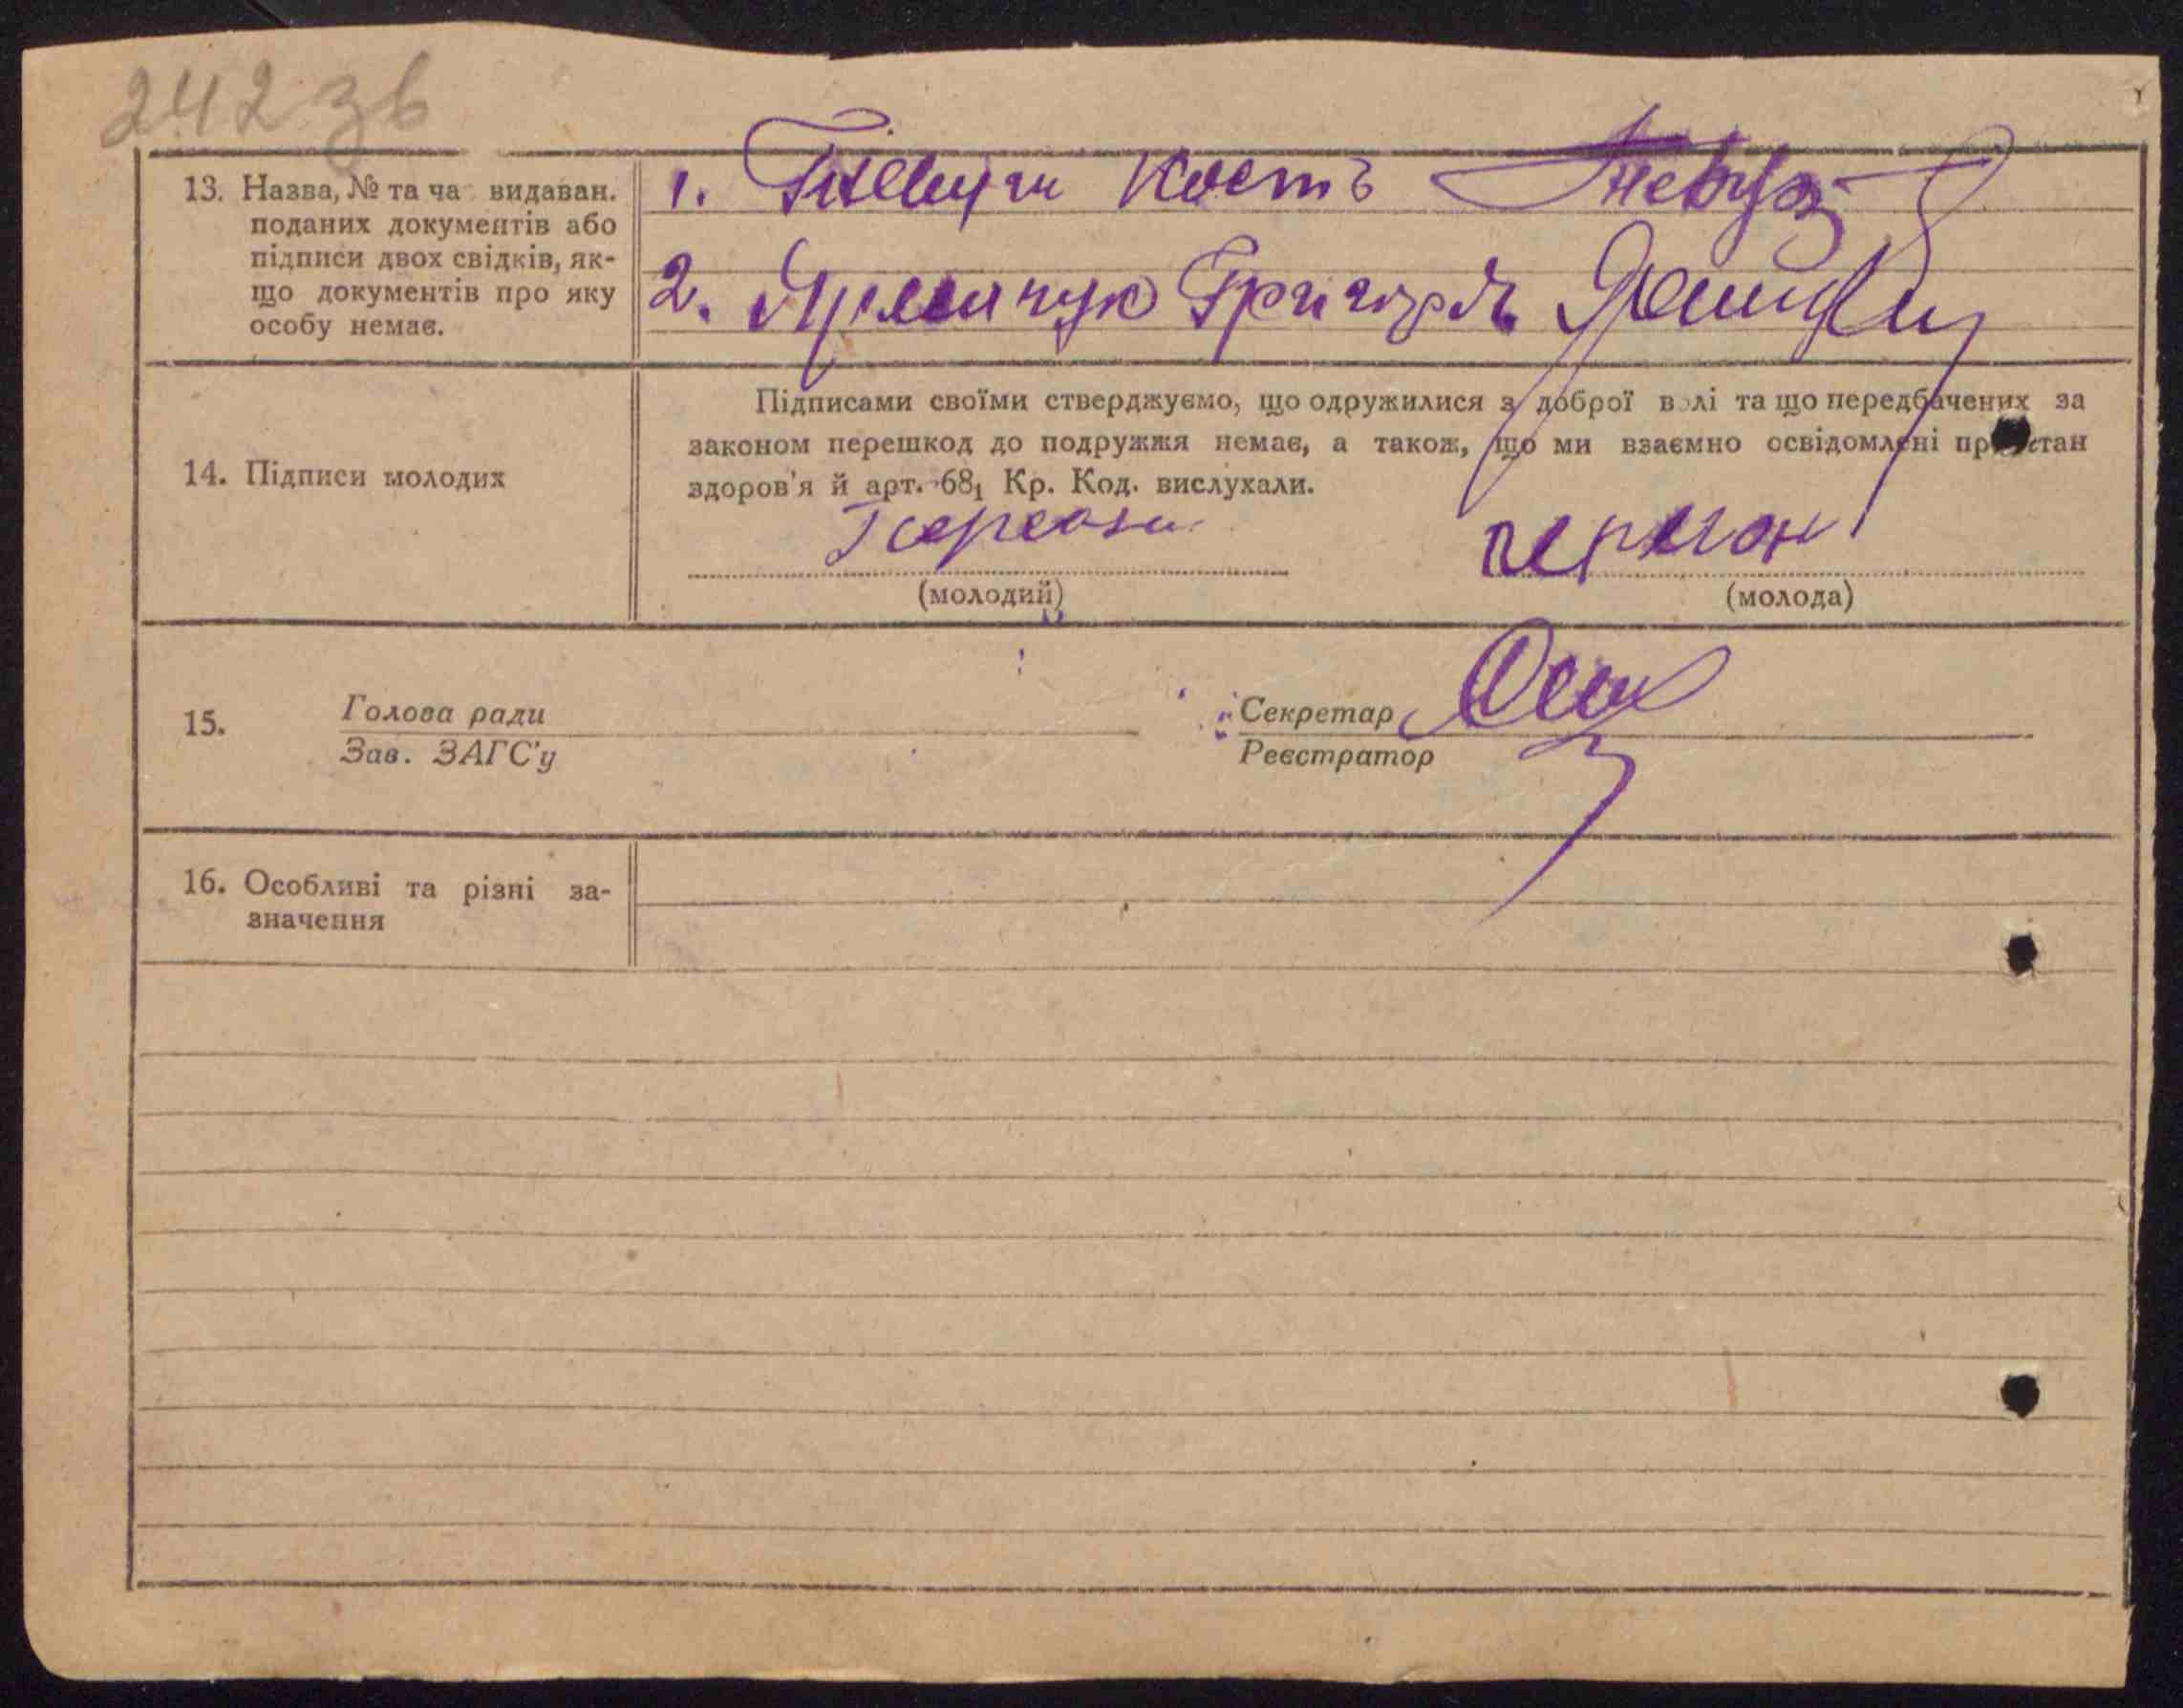 242 зв
13. Назва, № та ча видаван.
поданих документів або
підписи двох свідків, як-
що документів про яку
особу немає.
1. Кость
2. Яремчук Григорь
14. Підписи молодих
Підписами своїми стверджуємо, що одружилися з доброї волі та що передбачених за
законом перешкод до подружжя немає, а також, що ми взаємно освідомлені про стан
здоров'я й арт. 68₁ Кр. Код. вислухали.
(молодий)
(молода)
15.
Голова ради
Зав. ЗАГС'у
Секретар
Реєстратор
16. Особливі та різні за-
значення